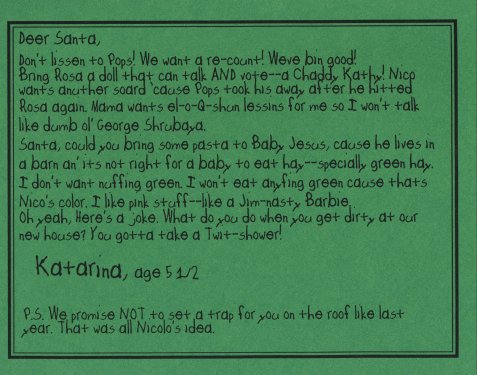 Deer Santa,
Don't lissen to Pops! We want a re-count! Weve bin good!
Bring Rosa a doll that can talk AND vote--a Chaddy Kathy! Nico
wants anuther soard 'cause Pops took his away after he hitted
Rosa again. Mama wants el-o-Q-shun lessins for me so I won't talk
like dumb ol' George Shrubaya.
Santa, could you bring some pasta to Baby Jesus, cause he lives in
a barn an' its not right for a baby to eat hay--specially green hay.
I don't want nuffing green. I won't eat anyfing green cause thats
Nico's color. I like pink stuff--like a Jim-nasty Barbie.
Oh yeah, Here's a joke. What do you do when you get dirty at our
new house? You gotta take a Twit-shower!
Katarina, age 5 1/2
P.S. We promise NOT to set a trap for you on the roof like last
year. That was all Nicolo's idea.